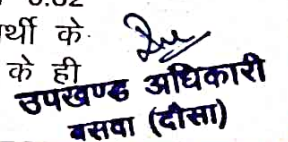 र्थी के
के ही
उपखण्ड अधिकारी
बसवा (दौसा)